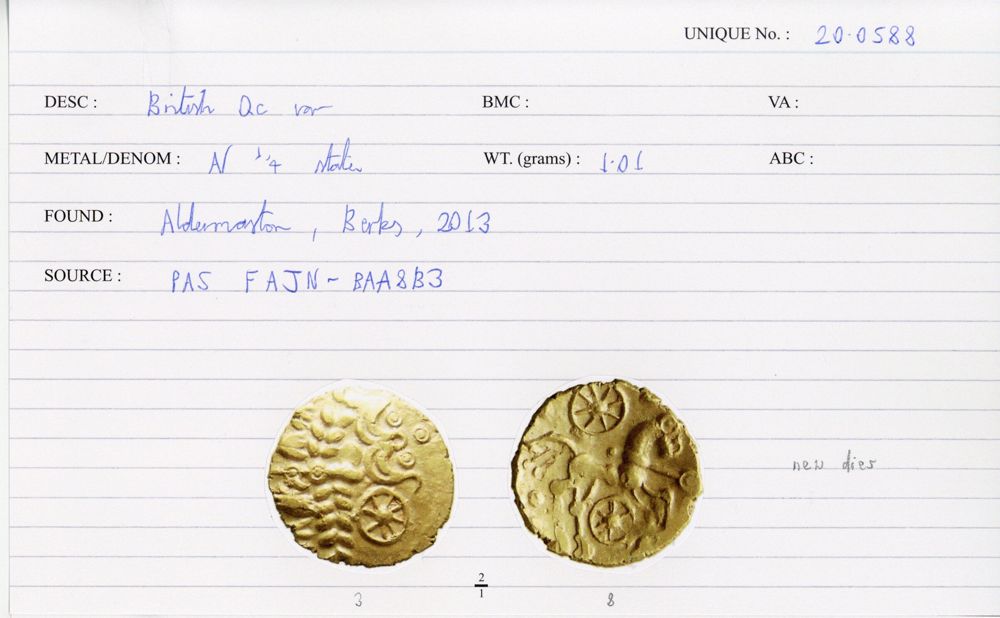 UNIQUE No. : 20·0588
DESC : British Qc var BMC : VA :
METAL/DENOM : AV 1/4 stater WT. (grams) : 1·01 ABC :
FOUND : Aldermaston, Berks, 2013
SOURCE : PAS FAJN-BAA8B3
new dies
2/1
3 8